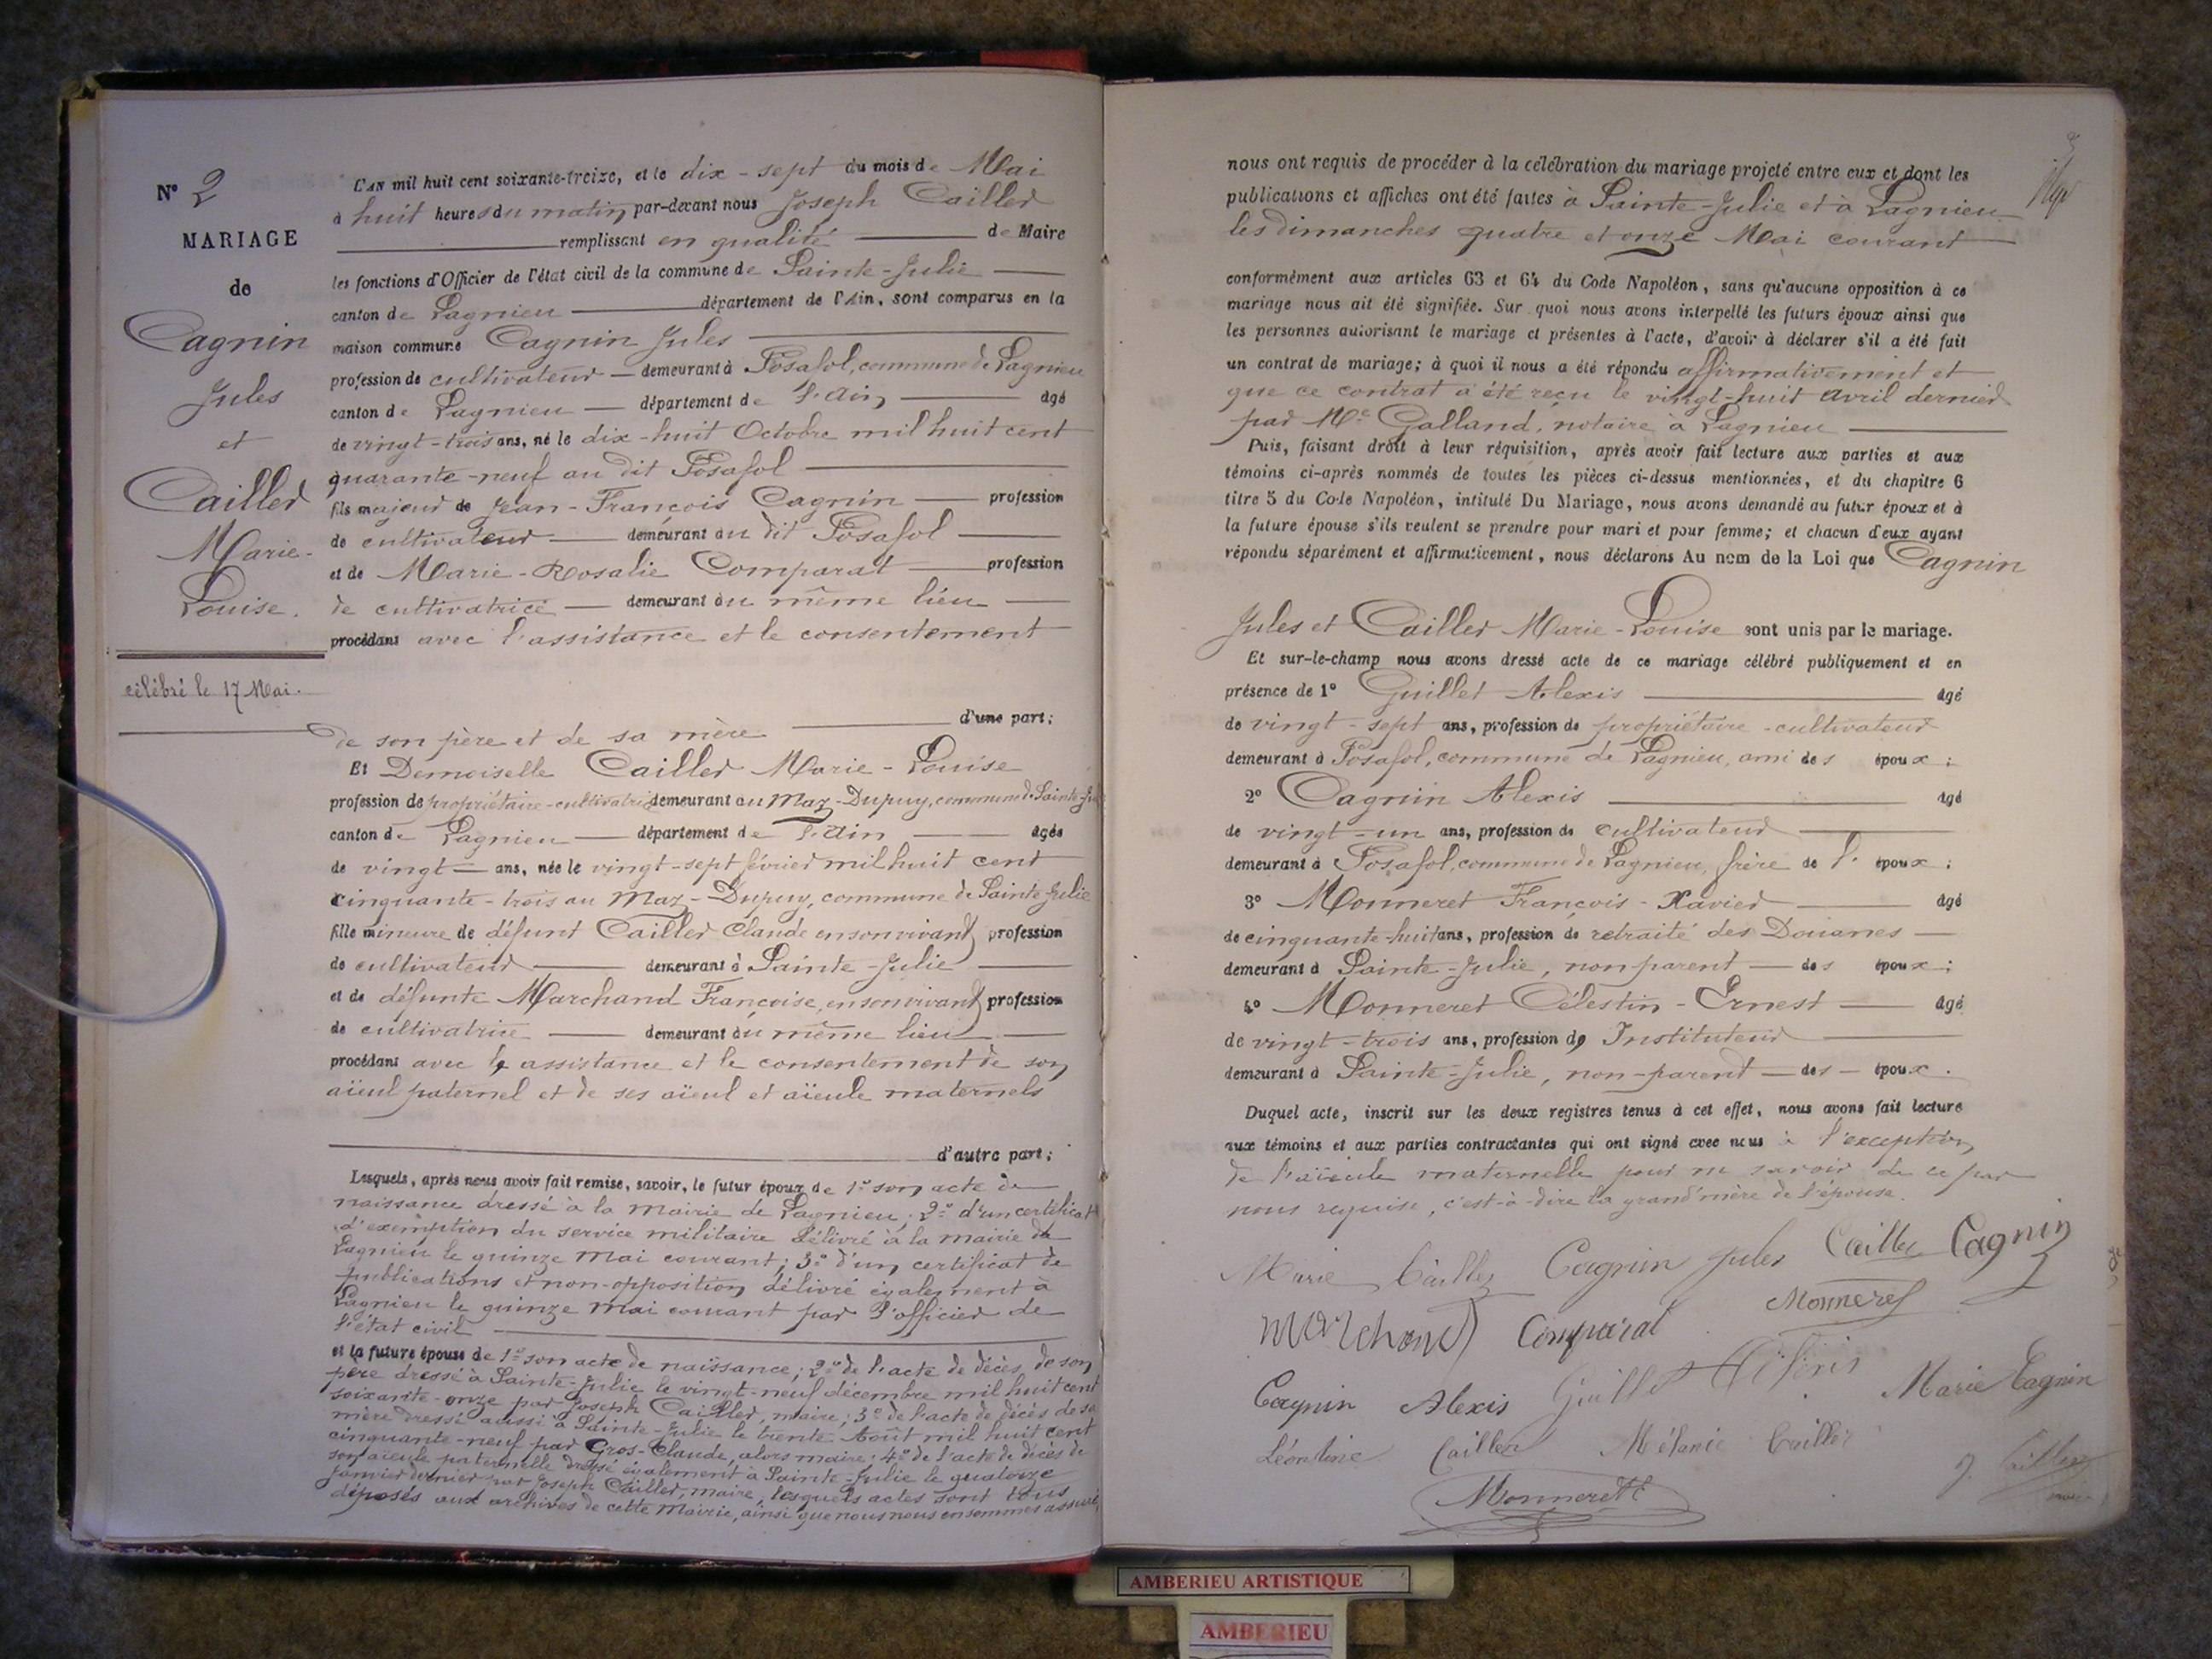 N° 2
MARIAGE
de
Cagnin
Jules
et
Cailler
Marie-
Louise.
célébré le 17 Mai.
L'AN mil huit cent soixante-treize, et le dix-sept du mois de Mai
à huit heures du matin par-devant nous Joseph Cailler
remplissant en qualité de Maire
les fonctions d'Officier de l'état civil de la commune de Sainte-Julie
canton de Lagnieu département de l'Ain, sont comparus en la
maison commune Cagnin Jules
profession de cultivateur demeurant à Posafol, commune de Lagnieu
canton de Lagnieu département de l'Ain âgé
de vingt-trois ans, né le dix-huit Octobre mil huit cent
quarante-neuf au dit Posafol
fils majeur de Jean-François Cagnin profession
de cultivateur demeurant au dit Posafol
et de Marie-Rosalie Comparat profession
de cultivatrice demeurant au même lieu
procédant avec l'assistance et le consentement
de son père et de sa mère d'une part;
Et Demoiselle Cailler Marie-Louise
profession de propriétaire-cultivatrice demeurant au Maz-Dupuy, commune de Sainte-Ju
canton de Lagnieu département de l'Ain âgée
de vingt ans, née le vingt-sept février mil huit cent
cinquante-trois au Maz-Dupuy, commune de Sainte-Julie
fille mineure de défunt Cailler Claude en son vivant profession
de cultivateur demeurant à Sainte-Julie
et de défunte Marchand Françoise, en son vivant profession
de cultivatrice demeurant au même lieu
procédant avec l'assistance et le consentement de son
aïeul paternel et de ses aïeul et aïeule maternels
d'autre part;
Lesquels, après nous avoir fait remise, savoir, le futur époux de 1° son acte de
naissance dressé à la mairie de Lagnieu; 2° d'un certificat
d'exemption du service militaire délivré à la mairie de
Lagnieu le quinze Mai courant; 3° d'un certificat de
publications et non-opposition délivré également à
Lagnieu le quinze mai courant par l'officier de
l'état civil
et la future épouse de 1° son acte de naissance; 2° de l'acte de décès de son
père dressé à Sainte-Julie le vingt-neuf décembre mil huit cent
soixante-onze par Joseph Cailler, maire; 3° de l'acte de décès de sa
mère dressé aussi à Sainte-Julie le trente Août mil huit cent
cinquante-neuf par Gros-Claude, alors maire; 4° de l'acte de décès de
son aïeule paternelle dressé également à Sainte-Julie le quatorze
Janvier dernier par Joseph Cailler, maire, lesquels actes sont tous
déposés aux archives de cette Mairie, ainsi que nous nous en sommes assuré,
nous ont requis de procéder à la célébration du mariage projeté entre eux et dont les
publications et affiches ont été faites à Sainte-Julie et à Lagnieu
les dimanches quatre et onze Mai courant
conformément aux articles 63 et 64 du Code Napoléon, sans qu'aucune opposition à ce
mariage nous ait été signifiée. Sur quoi nous avons interpellé les futurs époux ainsi que
les personnes autorisant le mariage et présentes à l'acte, d'avoir à déclarer s'il a été fait
un contrat de mariage; à quoi il nous a été répondu affirmativement et
que ce contrat a été reçu le vingt-huit avril dernier
par Me Galland, notaire à Lagnieu
Puis, faisant droit à leur réquisition, après avoir fait lecture aux parties et aux
témoins ci-après nommés de toutes les pièces ci-dessus mentionnées, et du chapitre 6
titre 5 du Code Napoléon, intitulé Du Mariage, nous avons demandé au futur époux et à
la future épouse s'ils veulent se prendre pour mari et pour femme; et chacun d'eux ayant
répondu séparément et affirmativement, nous déclarons Au nom de la Loi que Cagnin
Jules et Cailler Marie-Louise sont unis par le mariage.
Et sur-le-champ nous avons dressé acte de ce mariage célébré publiquement et en
présence de 1° Guillet Alexis âgé
de vingt-sept ans, profession de propriétaire-cultivateur
demeurant à Posafol, commune de Lagnieu, ami des époux;
2° Cagnin Alexis âgé
de vingt-un ans, profession de cultivateur
demeurant à Posafol, commune de Lagnieu, frère de l'époux;
3° Monneret François-Xavier âgé
de cinquante-huit ans, profession de retraité des Douanes
demeurant à Sainte-Julie, non parent des époux;
4° Monneret Célestin-Ernest âgé
de vingt-trois ans, profession de Instituteur
demeurant à Sainte-Julie, non-parent des époux.
Duquel acte, inscrit sur les deux registres tenus à cet effet, nous avons fait lecture
aux témoins et aux parties contractantes qui ont signé avec nous à l'exception
de l'aïeule maternelle pour ne savoir de ce par
nous requise, c'est-à-dire la grand'mère de l'épouse.
Marie Cailler Cagnin Jules Cailler Cagnin
Marchand Comparat Monneret
Cagnin Alexis Guillet Marie Cagnin
Léontine Cailler Mélanie Cailler
Monneret J Cailler
AMBERIEU ARTISTIQUE
AMBERIEU